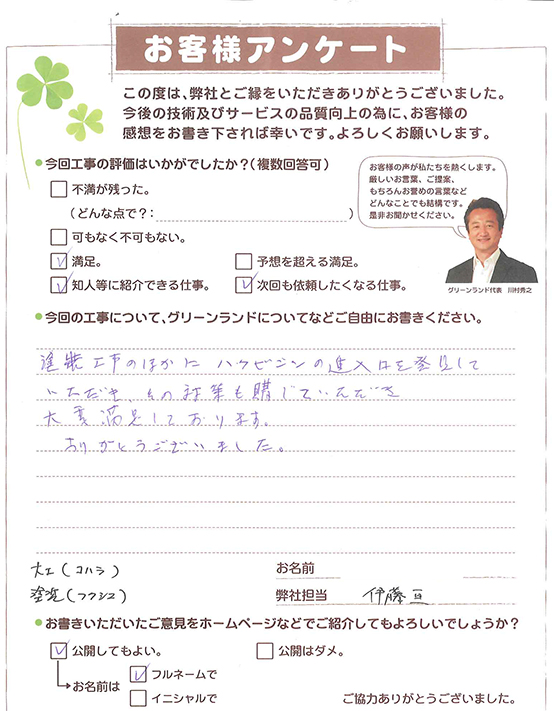 お客様アンケート
この度は、弊社とご縁をいただきありがとうございました。
今後の技術及びサービスの品質向上の為に、お客様の
感想をお書き下されば幸いです。よろしくお願いします。
●今回工事の評価はいかがでしたか?(複数回答可)
不満が残った。
(どんな点で?: )
可もなく不可もない。
満足。
予想を超える満足。
知人等に紹介できる仕事。
次回も依頼したくなる仕事。
お客様の声が私たちを熱くします。
厳しいお言葉、ご提案、
もちろんお誉めの言葉など
どんなことでも結構です。
是非お聞かせください。
グリーンランド代表 川村秀之
●今回の工事について、グリーンランドについてなどご自由にお書きください。
塗装工事のほかに ハクビシンの進入口を発見して
いただき、その対策も講じていただき
大変満足しております。
ありがとうございました。
大工(コハラ)
塗装(フクシマ)
お名前
弊社担当 伊藤亘
●お書きいただいたご意見をホームページなどでご紹介してもよろしいでしょうか?
公開してもよい。
公開はダメ。
お名前は
フルネームで
イニシャルで
ご協力ありがとうございました。